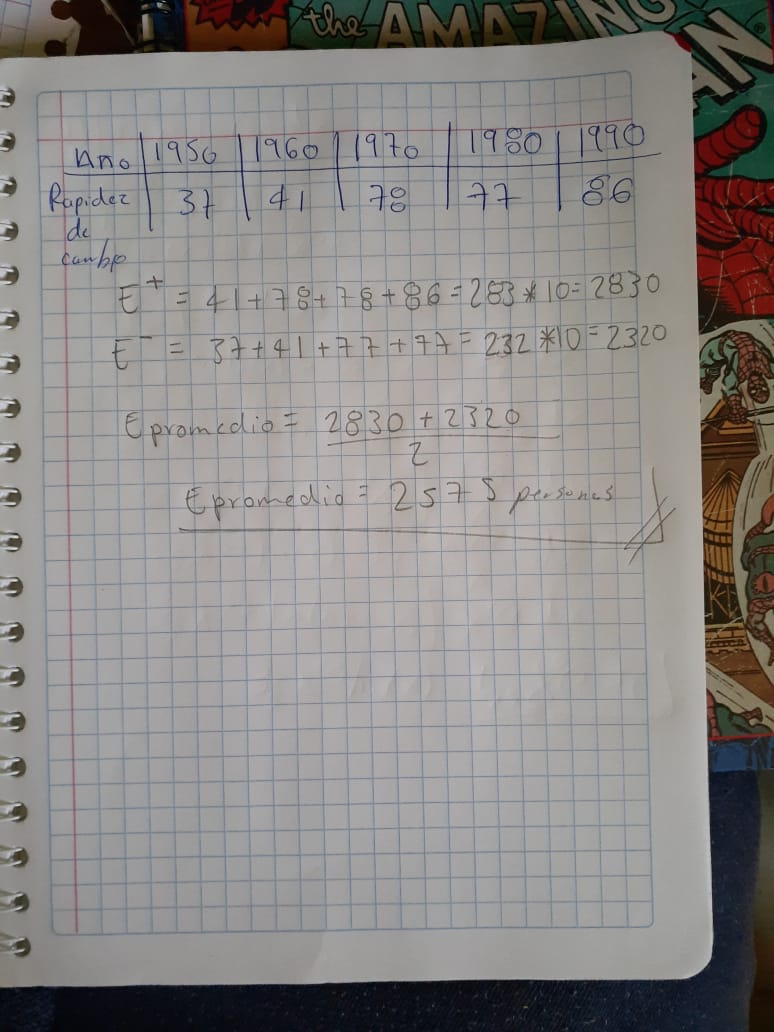 the AMAZING
AN
Ano | 1950 | 1960 | 1970 | 1980 | 1990
Rapidez | 37 | 41 | 78 | 77 | 86
de
cambio
E⁺ = 41+78+78+86=283*10=2830
E⁻ = 37+41+77+77=232*10=2320
E promedio = 2830 + 2320
2
E promedio = 2575 personas